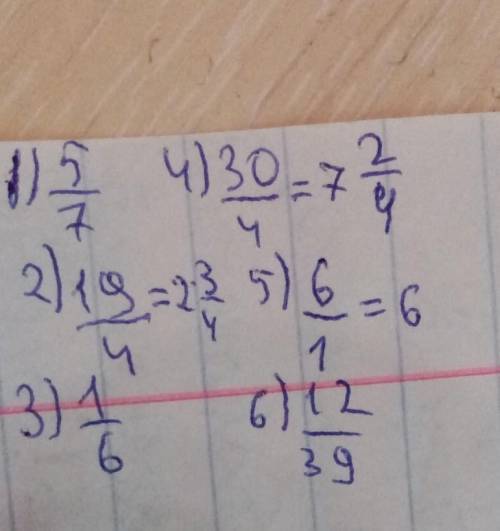 1) 5/7
4) 30/4 = 7 2/4
2) 19/4 = 2 3/4
5) 6/1 = 6
3) 1/6
6) 12/39